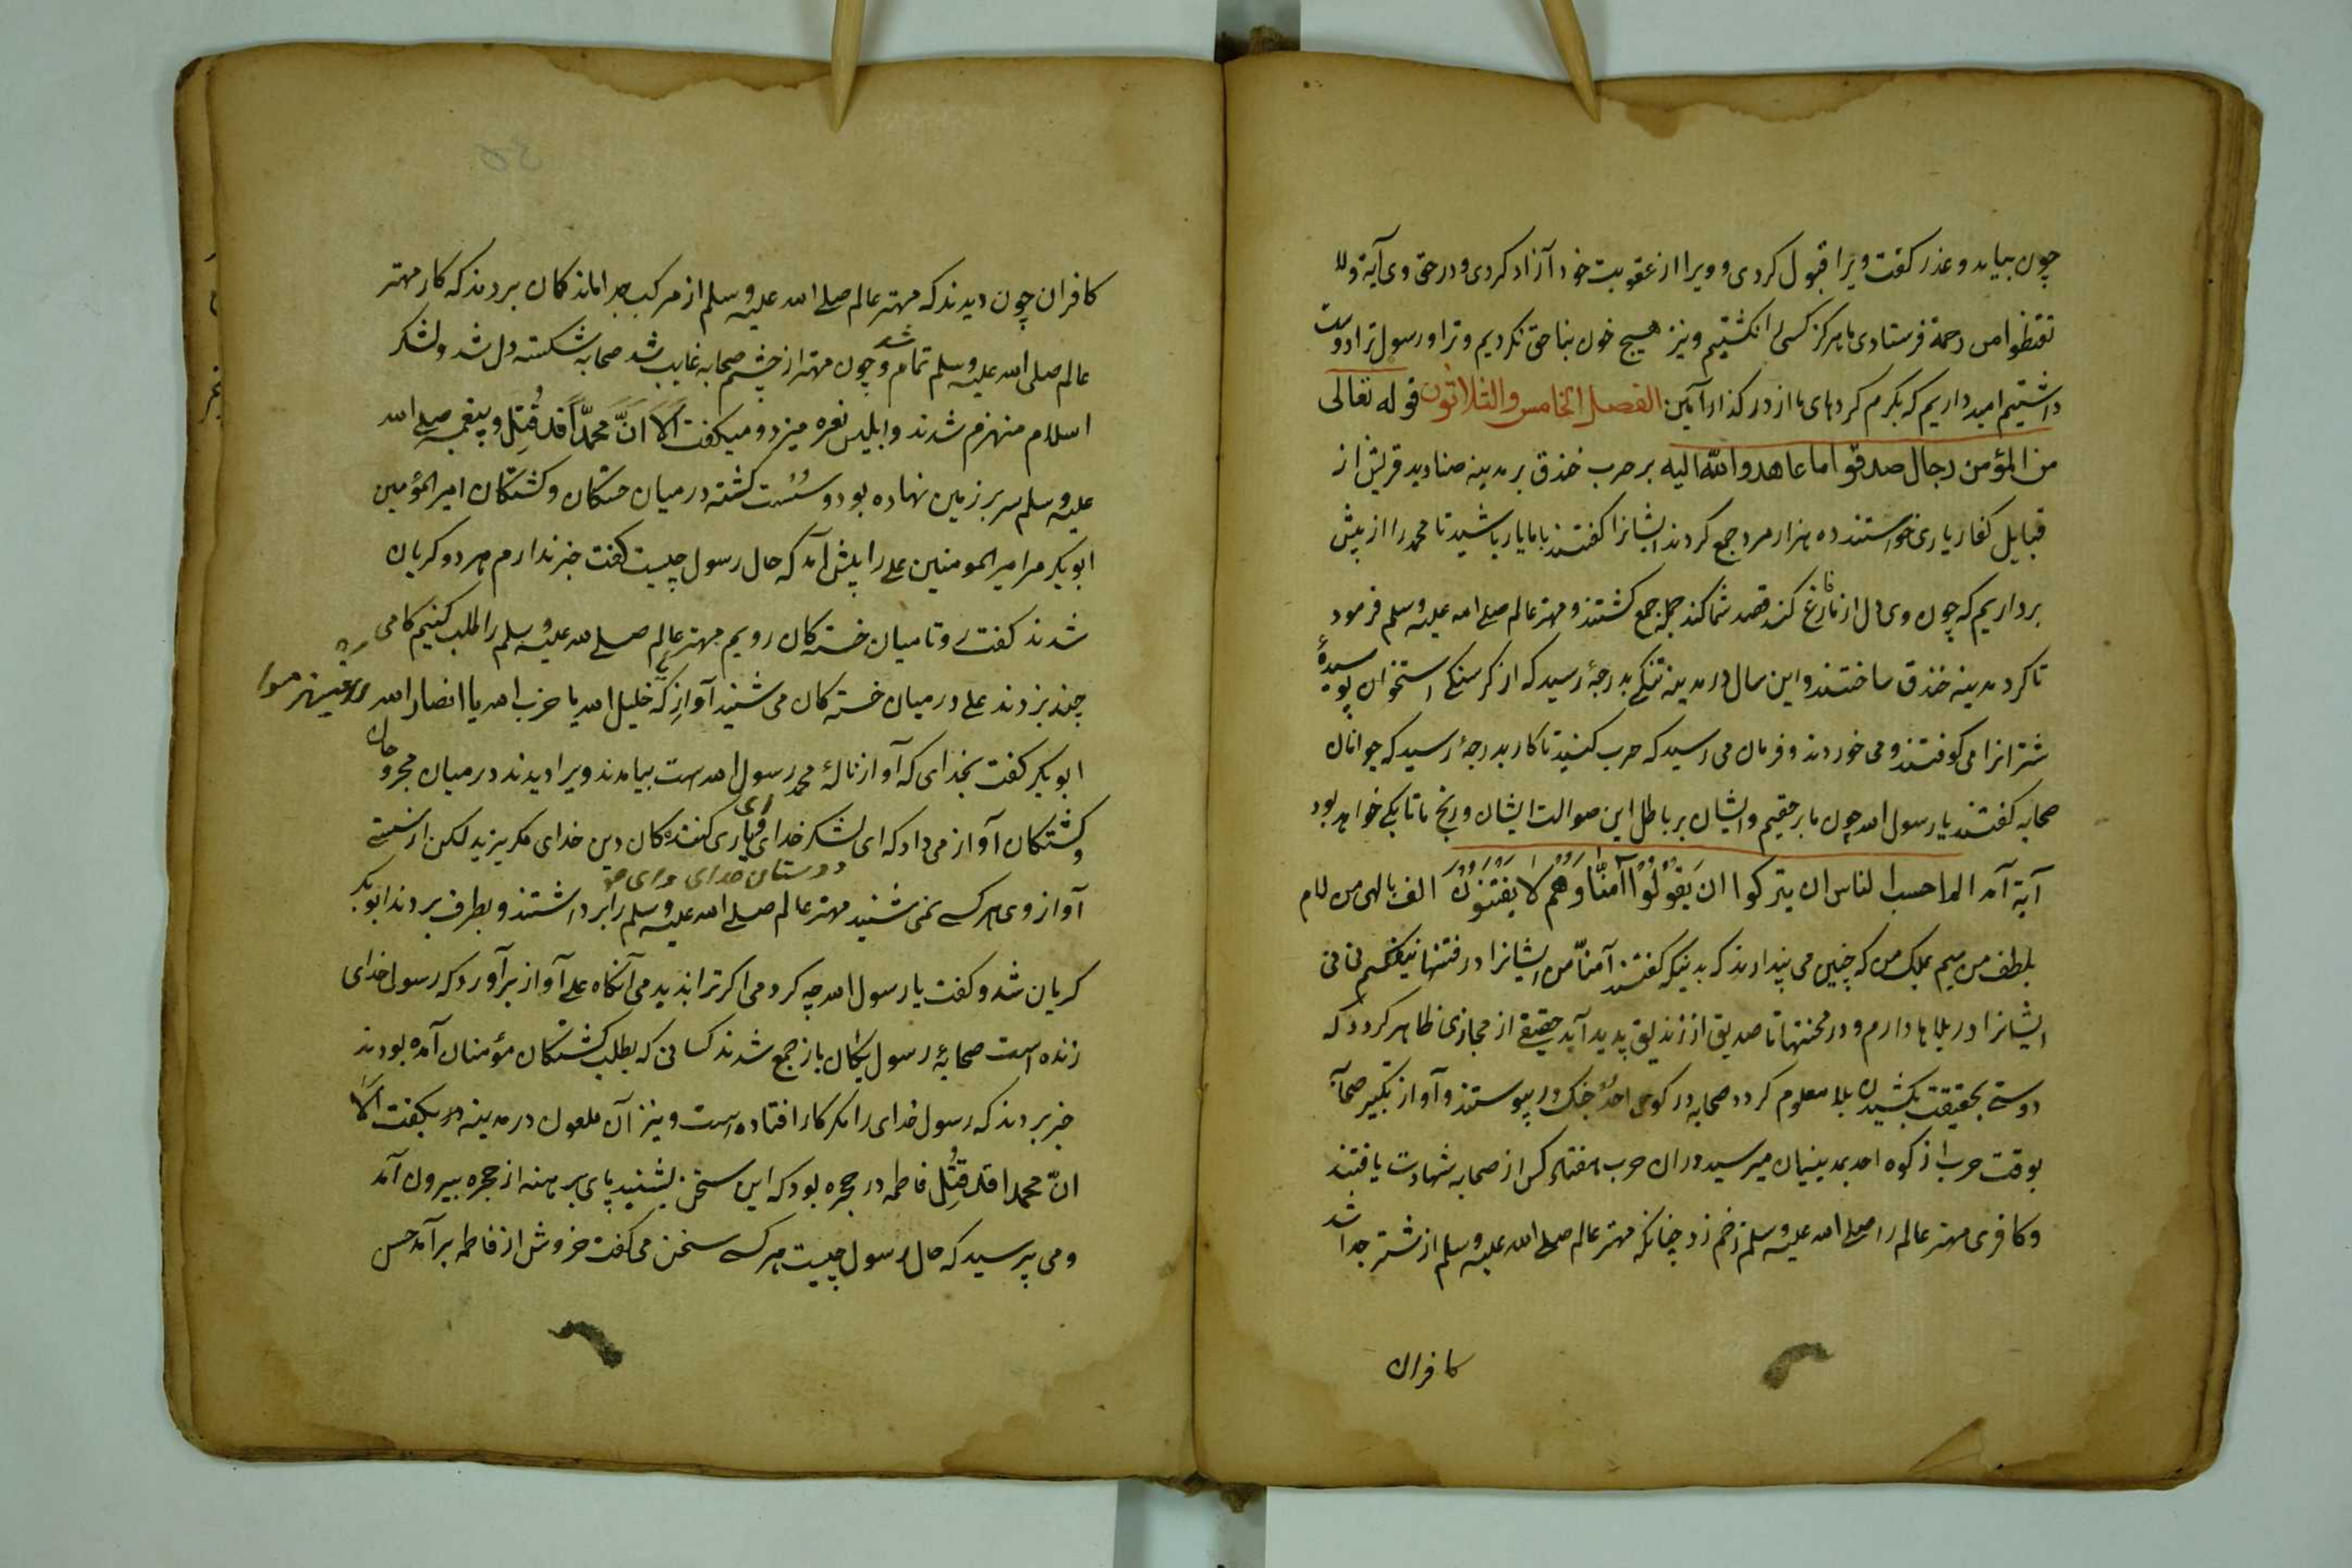 چون بیامد و عذر کفت ویرا قبول کردی و ویرا از عقوبت خود آزاد کردی و در حق وی آیة ولا
تقنطوا من رحمة فرستادی ما هرکز کسی را نکشتیم و نیز هیچ خون بناحق نکردیم و ترا و رسول ترا دوست
داشتیم امید داریم که بکرم کردهای ما از در کذار آمین الفصل الخامس والثلاثون قوله تعالی
من المؤمن رجال صدقوا ما عاهدوا الله الیه بر حرب خندق بر مدینه صنادید قریش از
قبایل کفار یاری خواستند ده هزار مرد جمع کردند ایشانرا کفتند با ما یار باشید تا محمد را از پیش
برداریم که چون وی دل از ما فارغ کند قصد شما کند جمله جمع کشتند و مهتر عالم صلی الله علیه وسلم فرمود
تا کرد مدینه خندق ساختند و این سال در مدینه تنکی بدرجۀ رسید که از کرسنکی استخوان پوسیدۀ
شترانرا می کوفتند و می خوردند و فرمان می رسید که حرب کنید تا کار بدرجۀ رسید که جوانان
صحابه کفتند یا رسول الله چون ما بر حقیم و ایشان بر باطل این صوالت ایشان و رنج ما تا بکی خواهد بود
آیة آمد الم احسب الناس ان یترکوا ان یَقُولُوا آمنّا وَهُم لا یفتنَوُنَ الف بالهی من لام
بلطف من میم بملک من که چنین می پندارند که بدنیکه کفتند آمنّا من ایشانرا در فتنها نیفکنم نی نی
ایشانرا در بلاها دارم و در محنتها تا صدیق از زندیق پدید آید حقیقی از مجازی ظاهر کردد که
دوستی بحقیقت بکشیدن بلا معلوم کردد صحابه در کوه احد جنک در پیوستند و آواز تکبیر صحابۀ
بوقت حرب از کوه احد بمدینیان میرسید دران حرب هفتاد کس از صحابه شهادت یافتند
و کافری مهتر عالم را صلی الله علیه وسلم زخم زد چنانکه مهتر عالم صلی الله علیه وسلم از شتر جدا شد
کافران
کافران چون دیدند که مهتر عالم صلی الله علیه وسلم از مرکب جدا ماند کمان بردند که کار مهتر
عالم صلی الله علیه وسلم تمام شد و چون مهتر از چشم صحابه غایب شد صحابه شکسته دل شد و لشکر
اسلام منهزم شدند و ابلیس نعره میزد و میکفت اَلَا انَّ محمّداً قد قُتِل و پیغمبر صلی الله
علیه وسلم سر بر زمین نهاده بود و سُست کشته در میان خستکان و کشتکان امیر المؤمنین
ابوبکر مر امیر المومنین علی را پیش آمد که حال رسول چیست کفت خبر ندارم هر دو کریان
شدند کفت تا میان خسته کان رویم مهتر عالم صلی الله علیه وسلم را طلب کنیم کامی
چند بزدند علی در میان خسته کان می شنید آوازی که خلیل الله یا حزب الله یا انصار الله
ابوبکر کفت بخدای که آواز نالۀ محمد رسول الله ست بیامدند ویرا دیدند در میان مجروحان
و کشتکان آواز می داد که ای لشکر خدای و ای یاری کننده کان دین خدای مکریزید لکن از سستی
دوستان خدای
آواز وی هر کسی نمی شنید مهتر عالم صلی الله علیه وسلم را برداشتند و بطرف بردند ابوبکر
کریان شد و کفت یا رسول الله چه کردمی اکر ترا ندیدمی آنکاه علی آواز برآورد که رسول خدای
زنده است صحابۀ رسول یکان باز جمع شدند کسانی که بطلب کشتکان مؤمنان آمده بودند
خبر بردند که رسول خدای را مکر کار افتاده است و نیز آن ملعون در مدینه در میکفت اَلَا
انّ محمدا قد قُتِل فاطمه در حجره بود که این سخن بشنید پای برهنه از حجره بیرون آمد
و می پرسید که حال رسول چیست هر کسی سخن می کفت خروش از فاطمه برآمد حسن